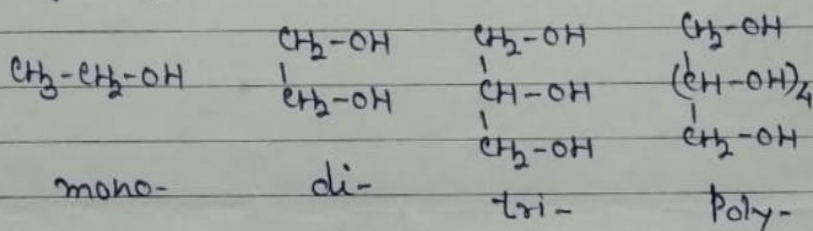 CH2-OH CH2-OH CH2-OH
CH3-CH2-OH CH2-OH CH-OH (CH-OH)4
CH2-OH CH2-OH
mono- di- tri- Poly-